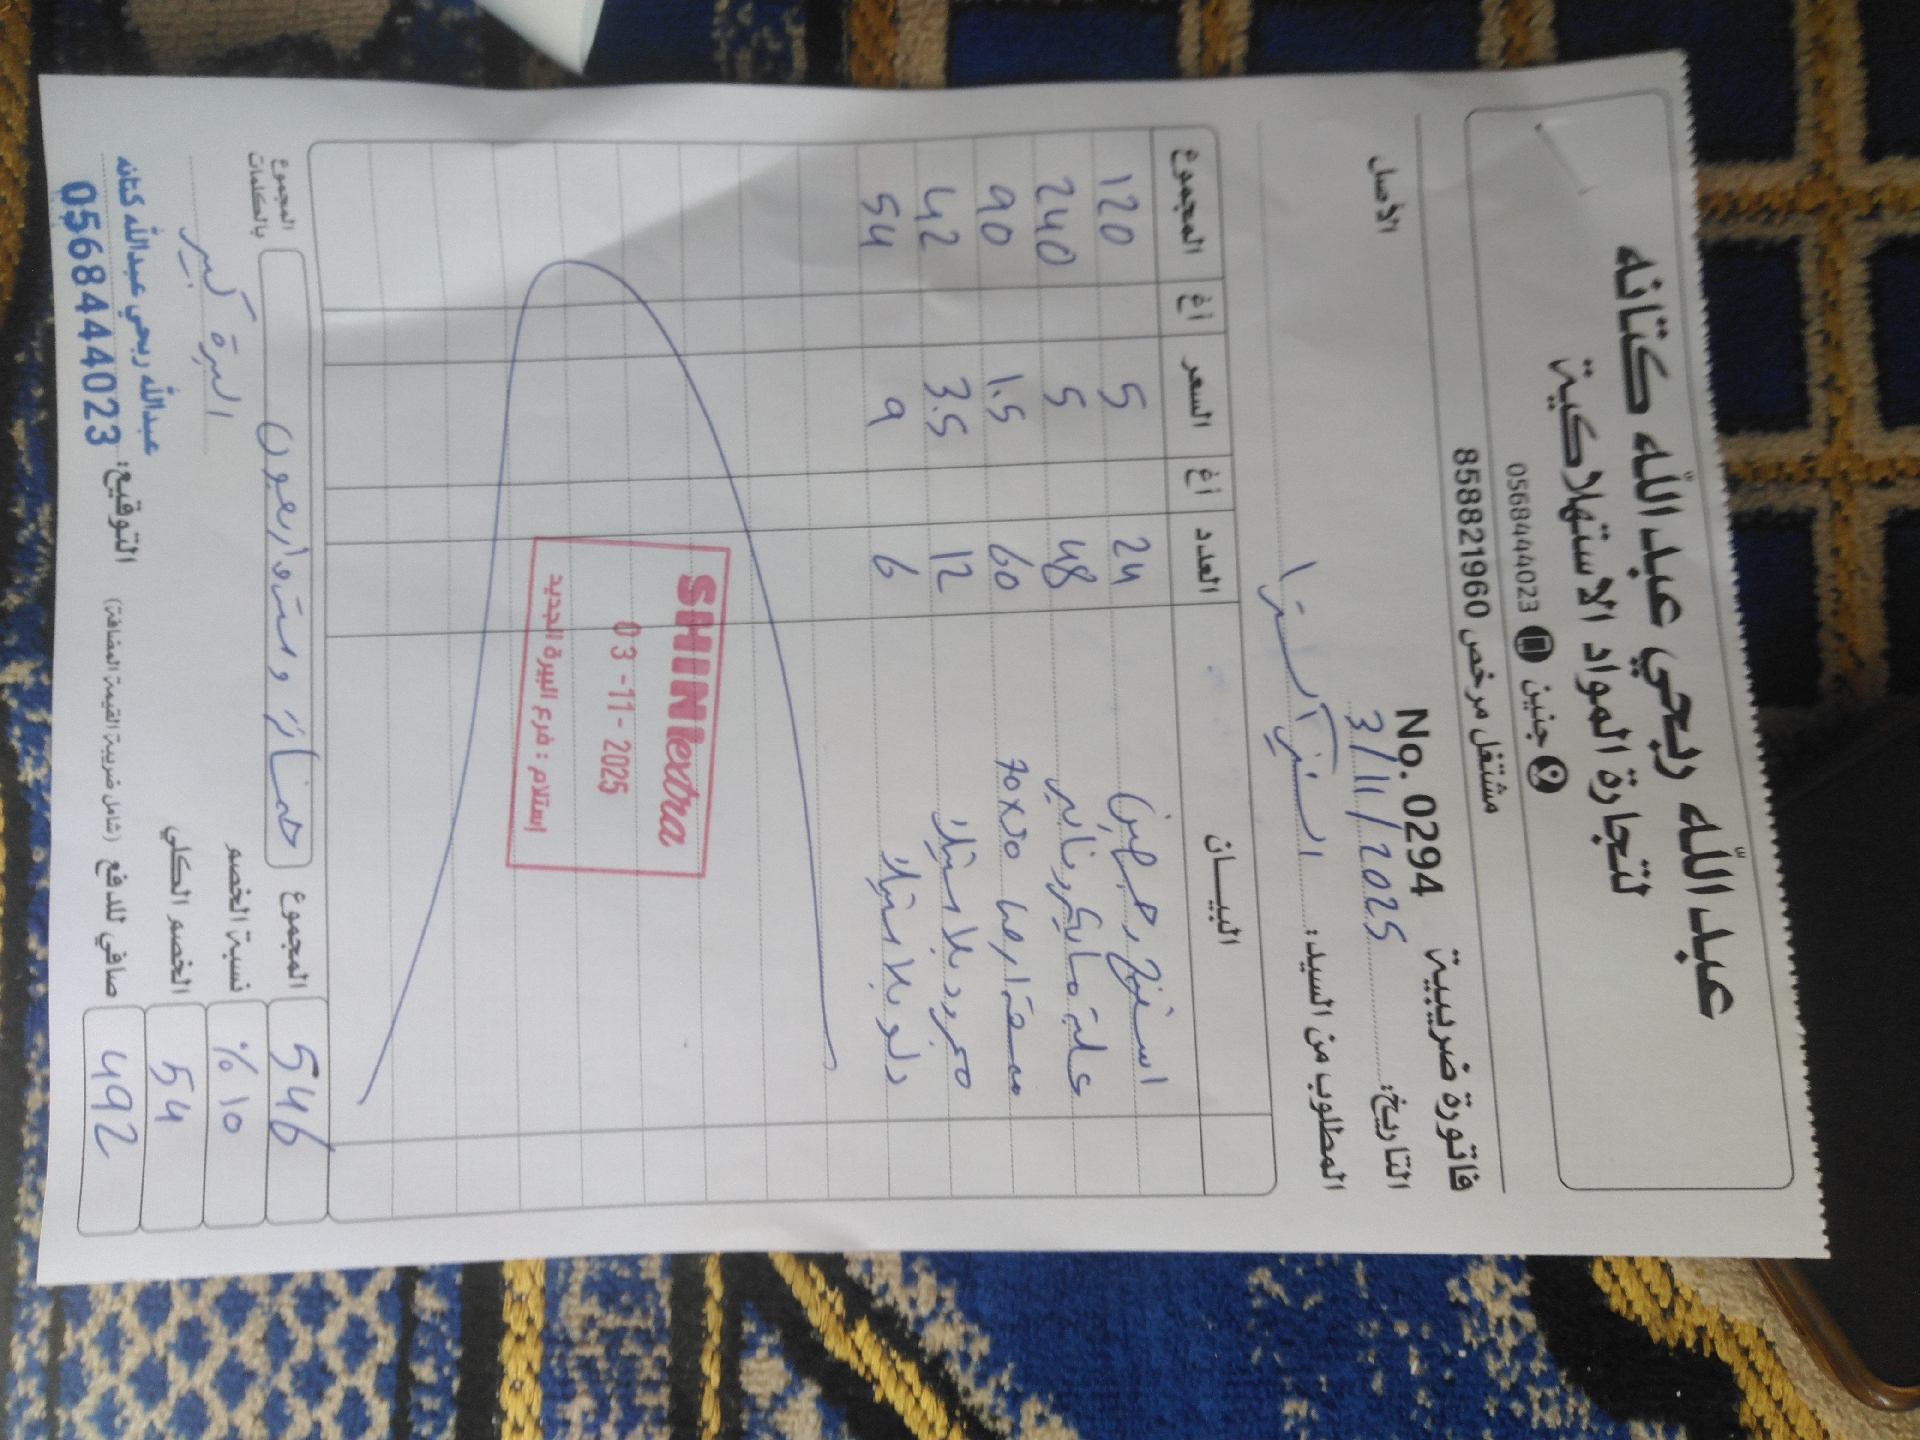 عبد الله ربحي عبد الله كتانه
لتجارة المواد الاستهلاكية
جنين 0568444023
مشتغل مرخص 858821960
فاتورة ضريبية No. 0294 الأصل
التاريخ: 3/11/2025
المطلوب من السيد: السنتر
البيـــان العدد أغ السعر أغ المجموع
24 5 120
علبة مايكروفايبر 48 5 240
70x50 60 1.5 90
مجرود بلاستيك 12 3.5 42
دلو بلاستيك 6 9 54
SHINIextra
03-11-2025
استلام : فرع البيرة الجديد
المجموع 546
المجموع بالكلمات خمسمائة وستة وأربعون
نسبة الخصم 10 %
الخصم الكلي 54
البيرة كبير
صافي للدفع (شامل ضريبة القيمة المضافة) 492
التوقيع:
عبدالله ربحي عبدالله كتانه
0568444023